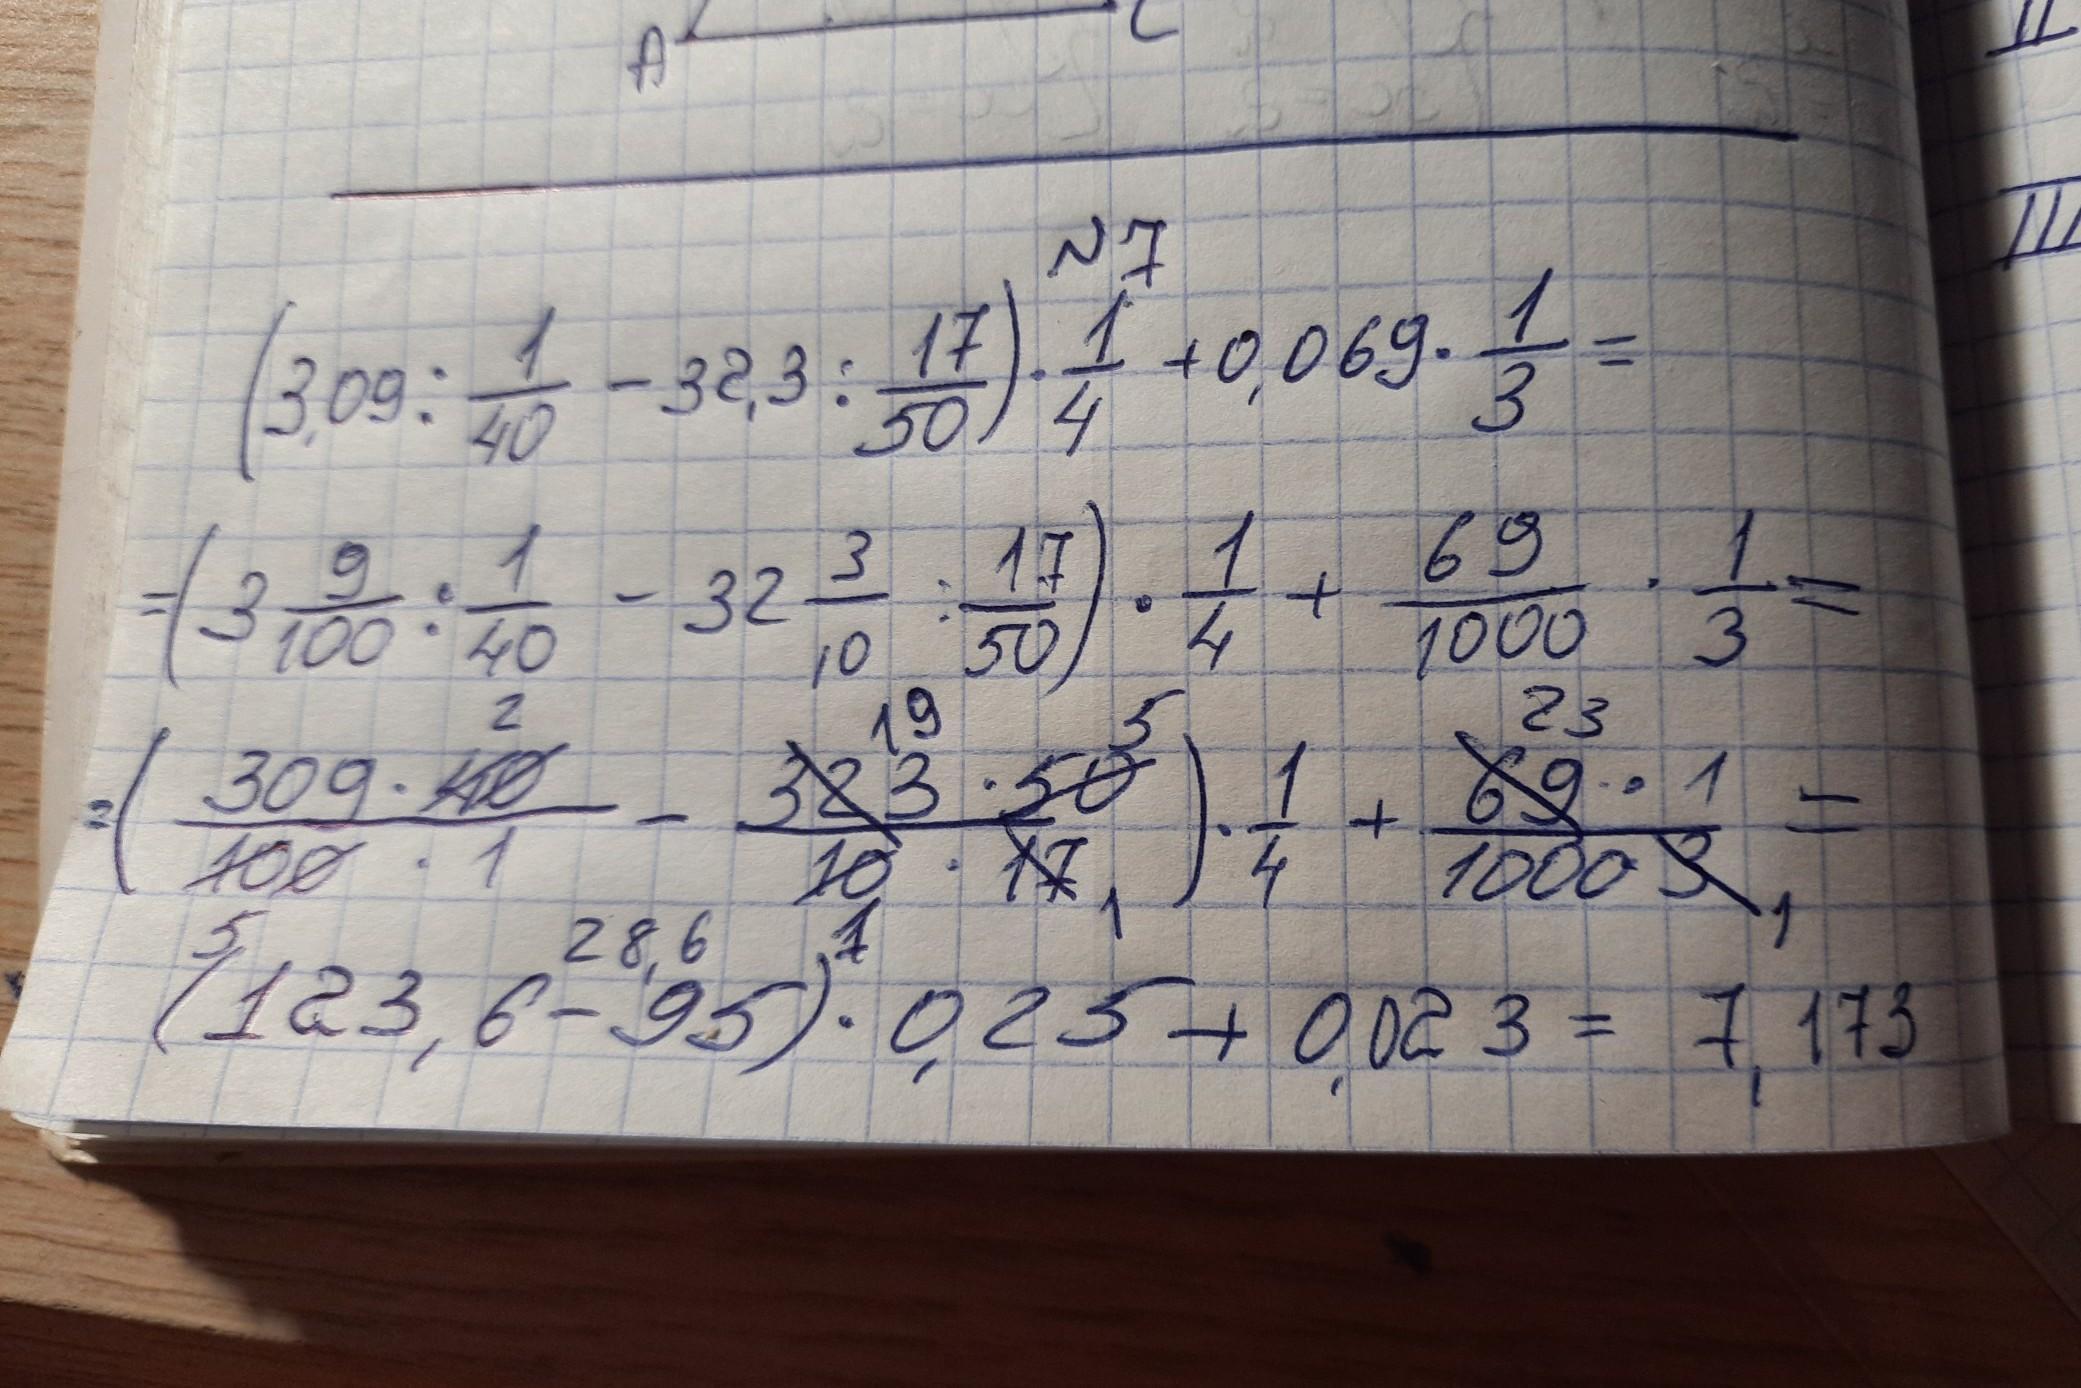 A C
II
III
№7
(3,09 : 1/40 - 32,3 : 17/50) · 1/4 + 0,069 · 1/3 =
= (3 9/100 : 1/40 - 32 3/10 : 17/50) · 1/4 + 69/1000 · 1/3 =
2 19 5 23
= (309 · 40 / 100 · 1 - 323 · 50 / 10 · 17) · 1/4 + 69 · 1 / 1000 3 =
5 28,6 1 1 1
(123,6 - 95) · 0,25 + 0,023 = 7,173